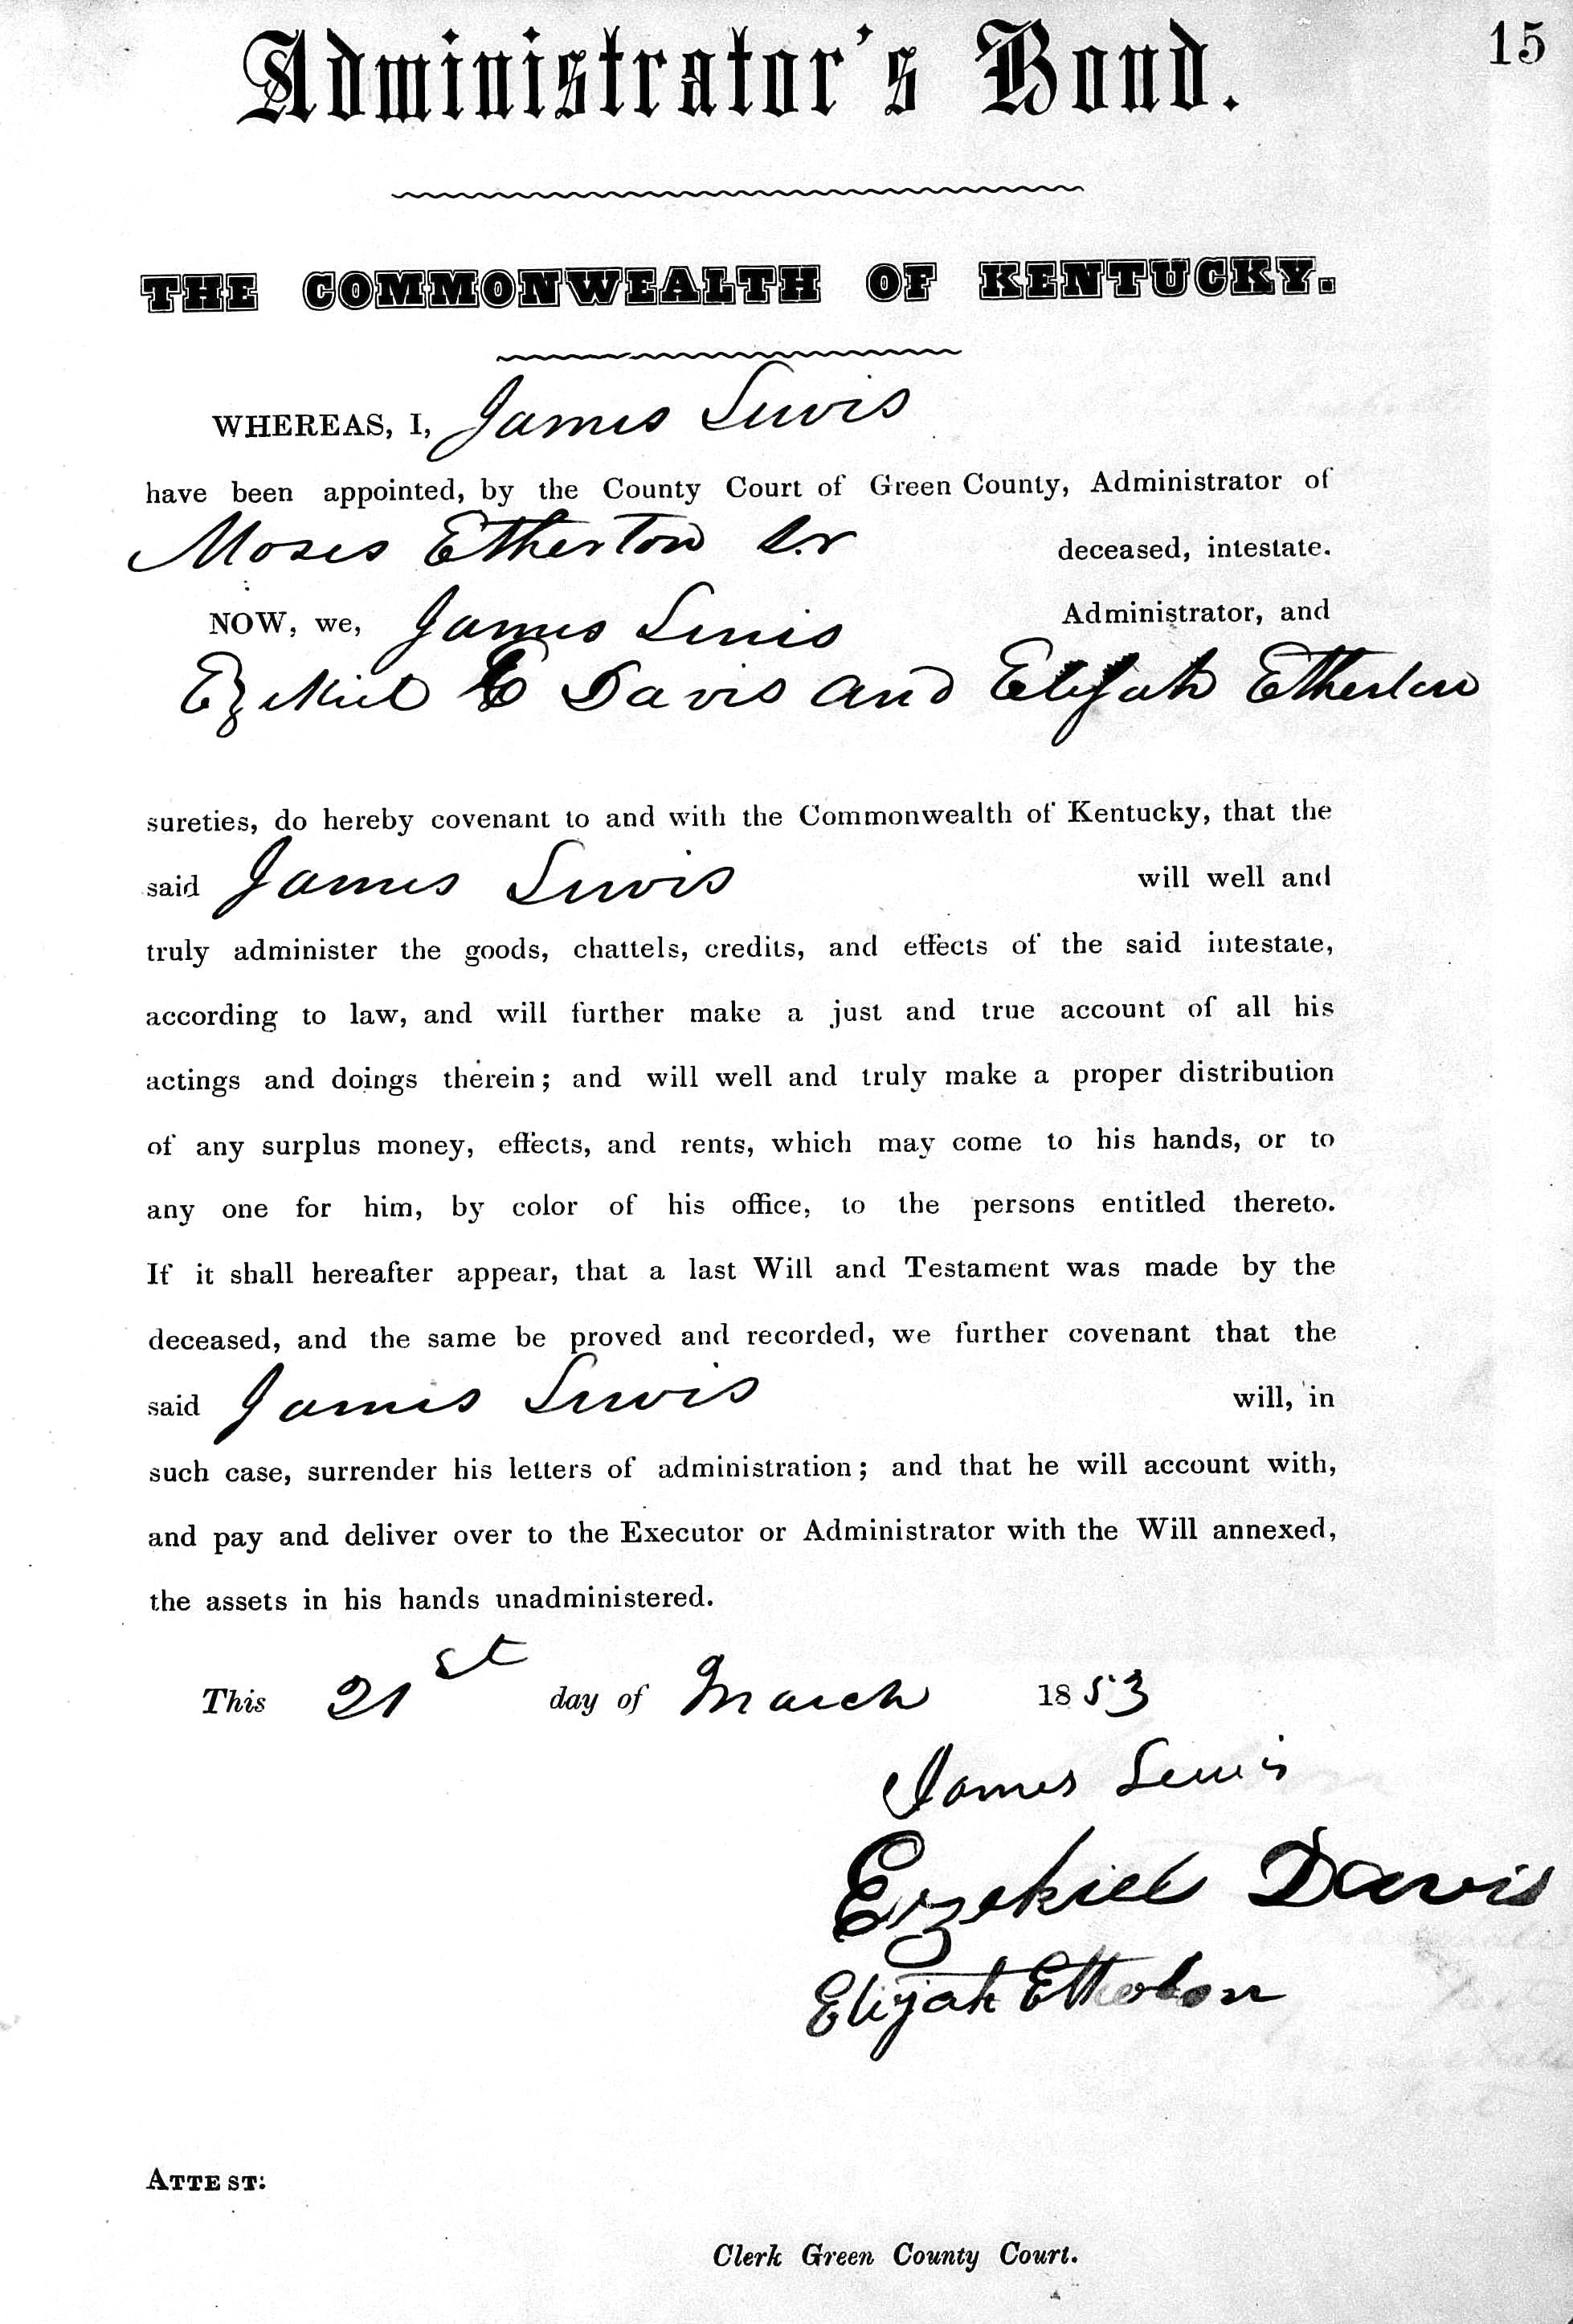 15
Administrator's Bond.
THE COMMONWEALTH OF KENTUCKY.
WHEREAS, I, James Lewis
have been appointed, by the County Court of Green County, Administrator of
Moses Etherton deceased, intestate.
NOW, we, James Lewis Administrator, and
Ezekiel Davis and Elijah Etherton
sureties, do hereby covenant to and with the Commonwealth of Kentucky, that the
said James Lewis will well and
truly administer the goods, chattels, credits, and effects of the said intestate,
according to law, and will further make a just and true account of all his
actings and doings therein; and will well and truly make a proper distribution
of any surplus money, effects, and rents, which may come to his hands, or to
any one for him, by color of his office, to the persons entitled thereto.
If it shall hereafter appear, that a last Will and Testament was made by the
deceased, and the same be proved and recorded, we further covenant that the
said James Lewis will, in
such case, surrender his letters of administration; and that he will account with,
and pay and deliver over to the Executor or Administrator with the Will annexed,
the assets in his hands unadministered.
This 21st day of March 1853
James Lewis
Ezekiel Davis
Elijah Etherton
ATTEST:
Clerk Green County Court.